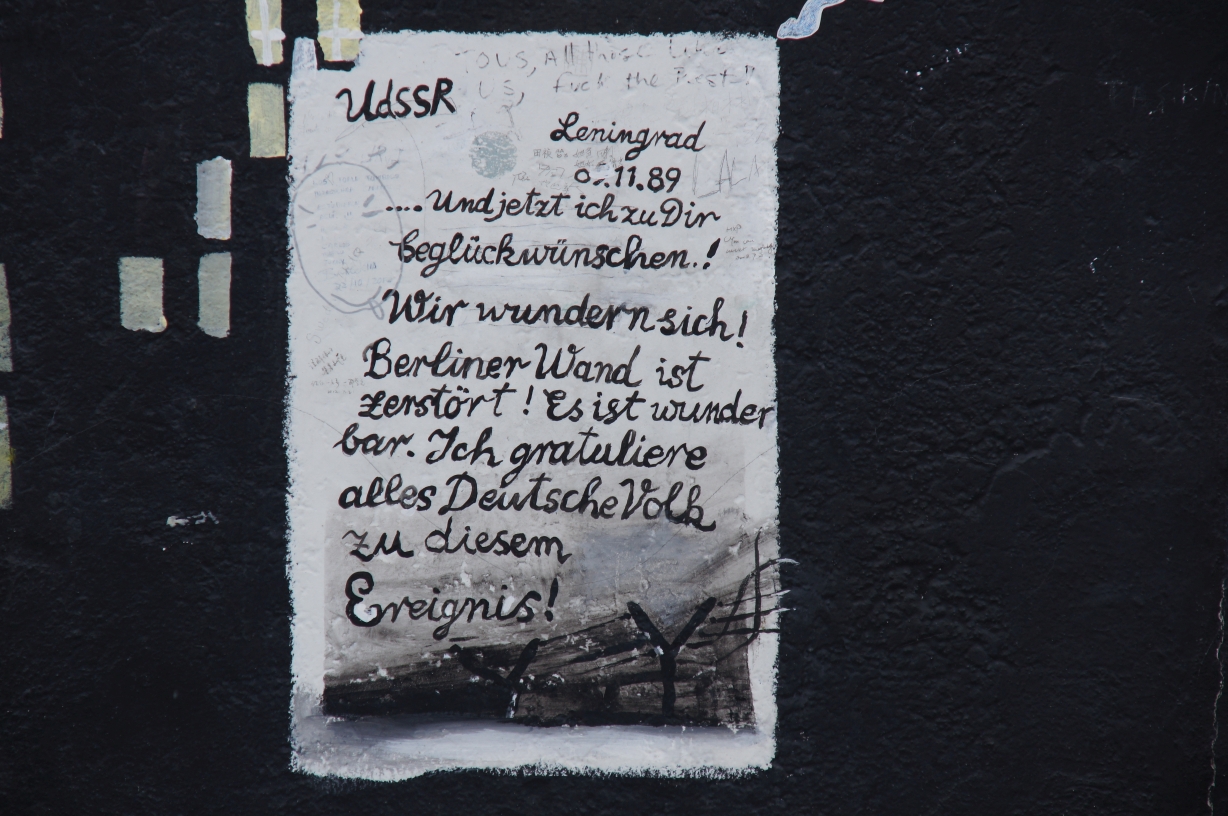 OUS, All those like
US, fuck the Rest!!
UdSSR
Leningrad
.11.89
LALA
.... Und jetzt ich zu Dir
beglückwünschen.!
Wir wundern sich!
Berliner Wand ist
zerstört! Es ist wunder
bar. Ich gratuliere
alles Deutsche Volk
zu diesem
Ereignis!